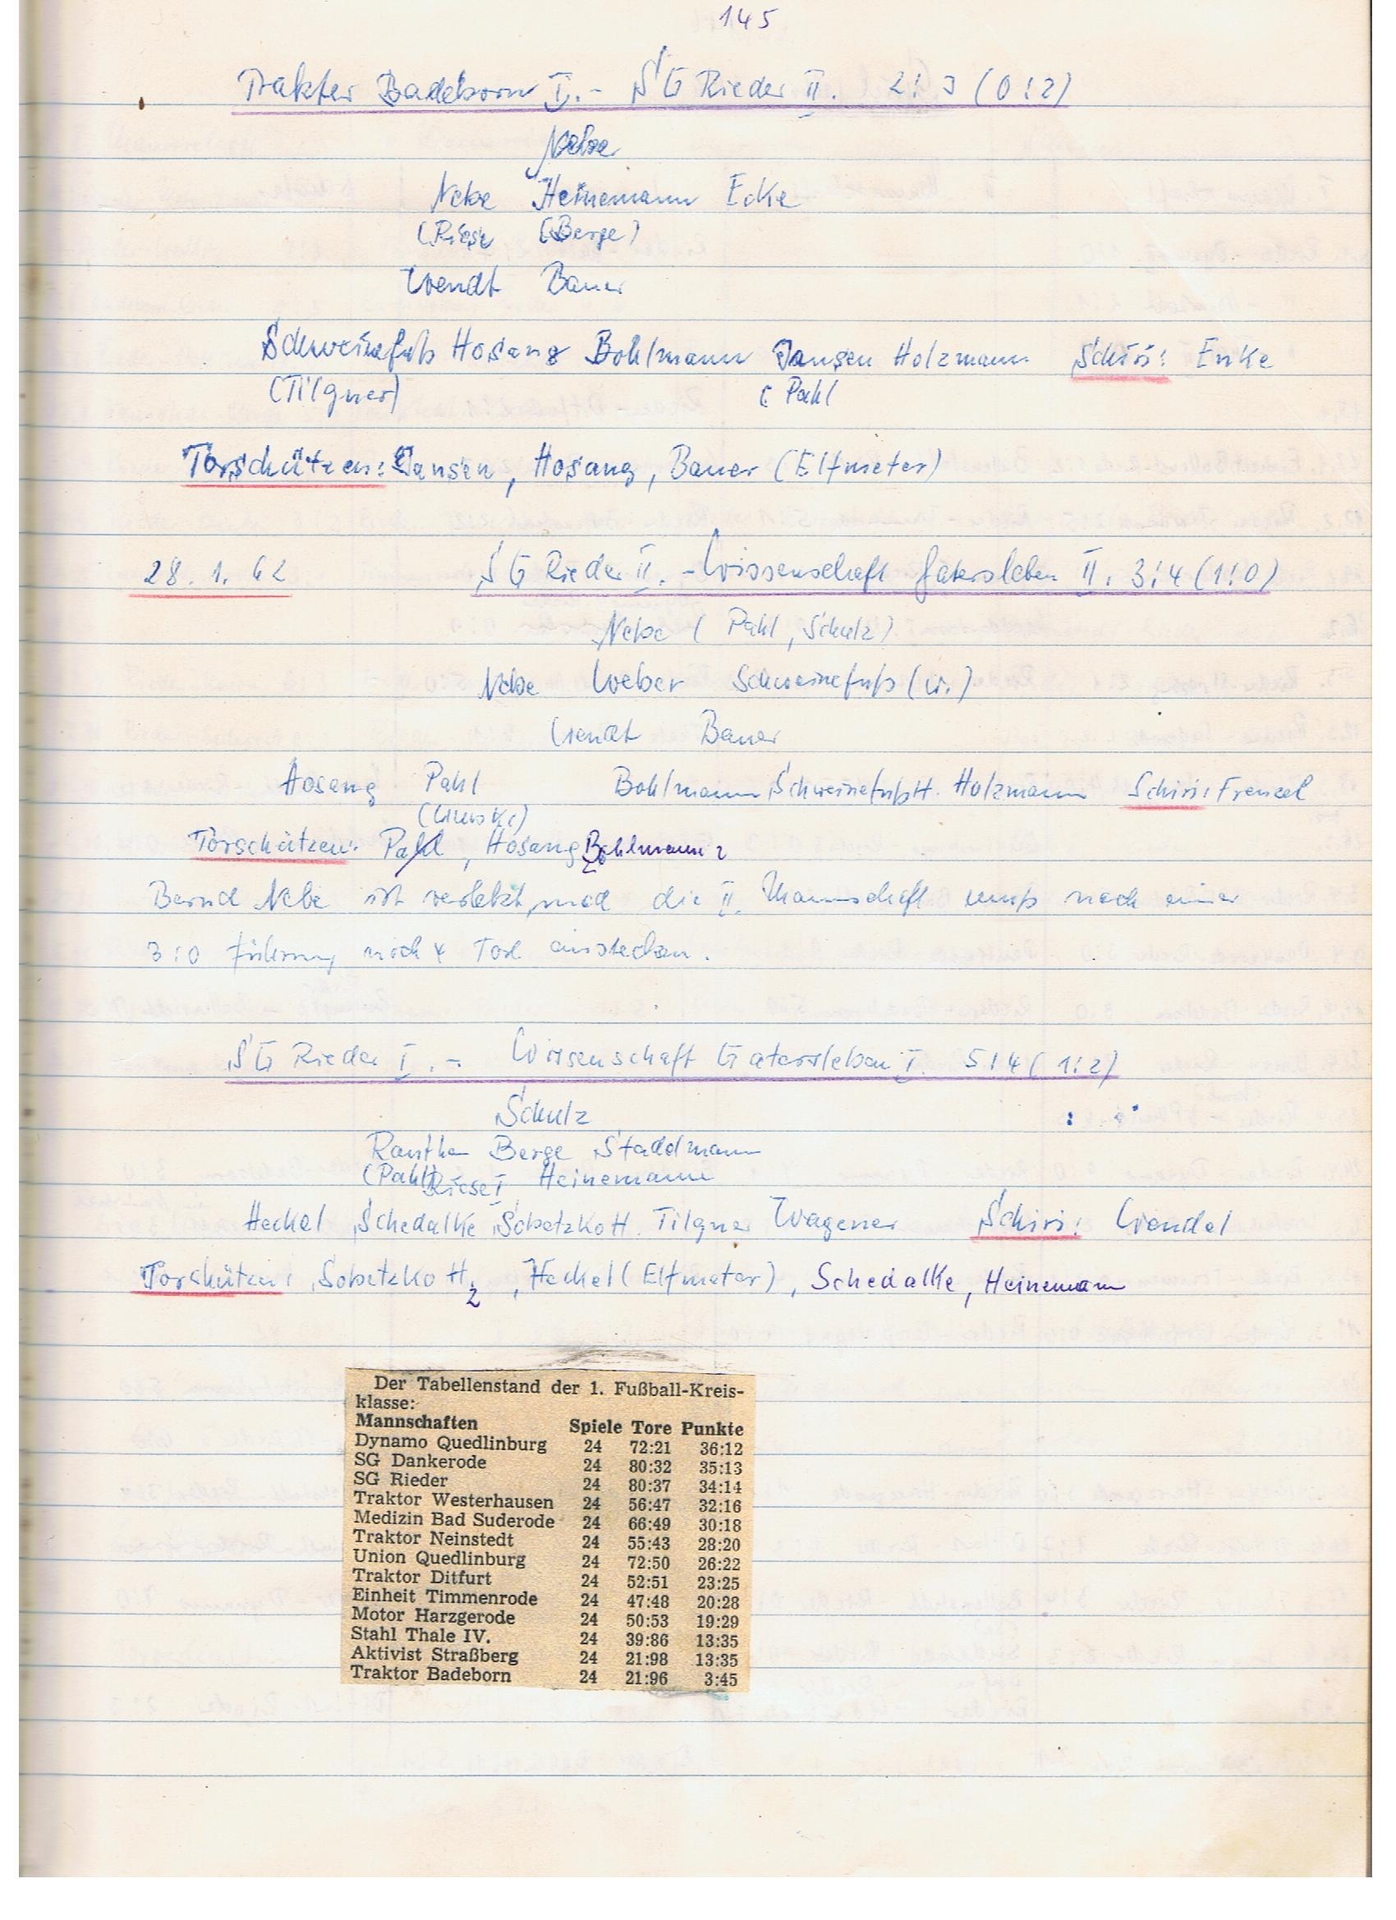 145
Traktor Badeborn I. - SG Rieder II. 2:3 (0:2)
Nebe
Nebe Heinemann Ecke
(Riese (Berge)
Wendt Bauer
Schweinefuß Hosang Bohlmann Jansen Holzmann Schiri: Enke
(Tilgner) ( Pahl
Torschützen: Jansen, Hosang, Bauer (Elfmeter)
28.1.62 SG Rieder II. - Wissenschaft Gatersleben II. 3:4 (1:0)
Nebe ( Pahl, Schulz)
Nebe Weber Schweinefuß (W.)
Wendt Bauer
Hosang Pahl Bohlmann Schweinefuß H. Holzmann Schiri: Frenzel
Torschützen: Pahl, Hosang Bohlmann 2
Bernd Nebe ist verletzt und die II. Mannschaft muß nach einer
3:0 Führung noch 4 Tore einstecken.
SG Rieder I. - Wissenschaft Gatersleben I. 5:4 (1:2)
Schulz
Ranthe Berge Stadelmann
(Pahl) Riese I Heinemann
Heckel Schedalke Sobetzko H. Tilgner Wagener Schiri: Wendel
Torschützen: Sobetzko H 2, Heckel (Elfmeter), Schedalke, Heinemann
Der Tabellenstand der 1. Fußball-Kreis-
klasse:
Mannschaften Spiele Tore Punkte
Dynamo Quedlinburg 24 72:21 36:12
SG Dankerode 24 80:32 35:13
SG Rieder 24 80:37 34:14
Traktor Westerhausen 24 56:47 32:16
Medizin Bad Suderode 24 66:49 30:18
Traktor Neinstedt 24 55:43 28:20
Union Quedlinburg 24 72:50 26:22
Traktor Ditfurt 24 52:51 23:25
Einheit Timmenrode 24 47:48 20:28
Motor Harzgerode 24 50:53 19:29
Stahl Thale IV. 24 39:86 13:35
Aktivist Straßberg 24 21:98 13:35
Traktor Badeborn 24 21:96 3:45